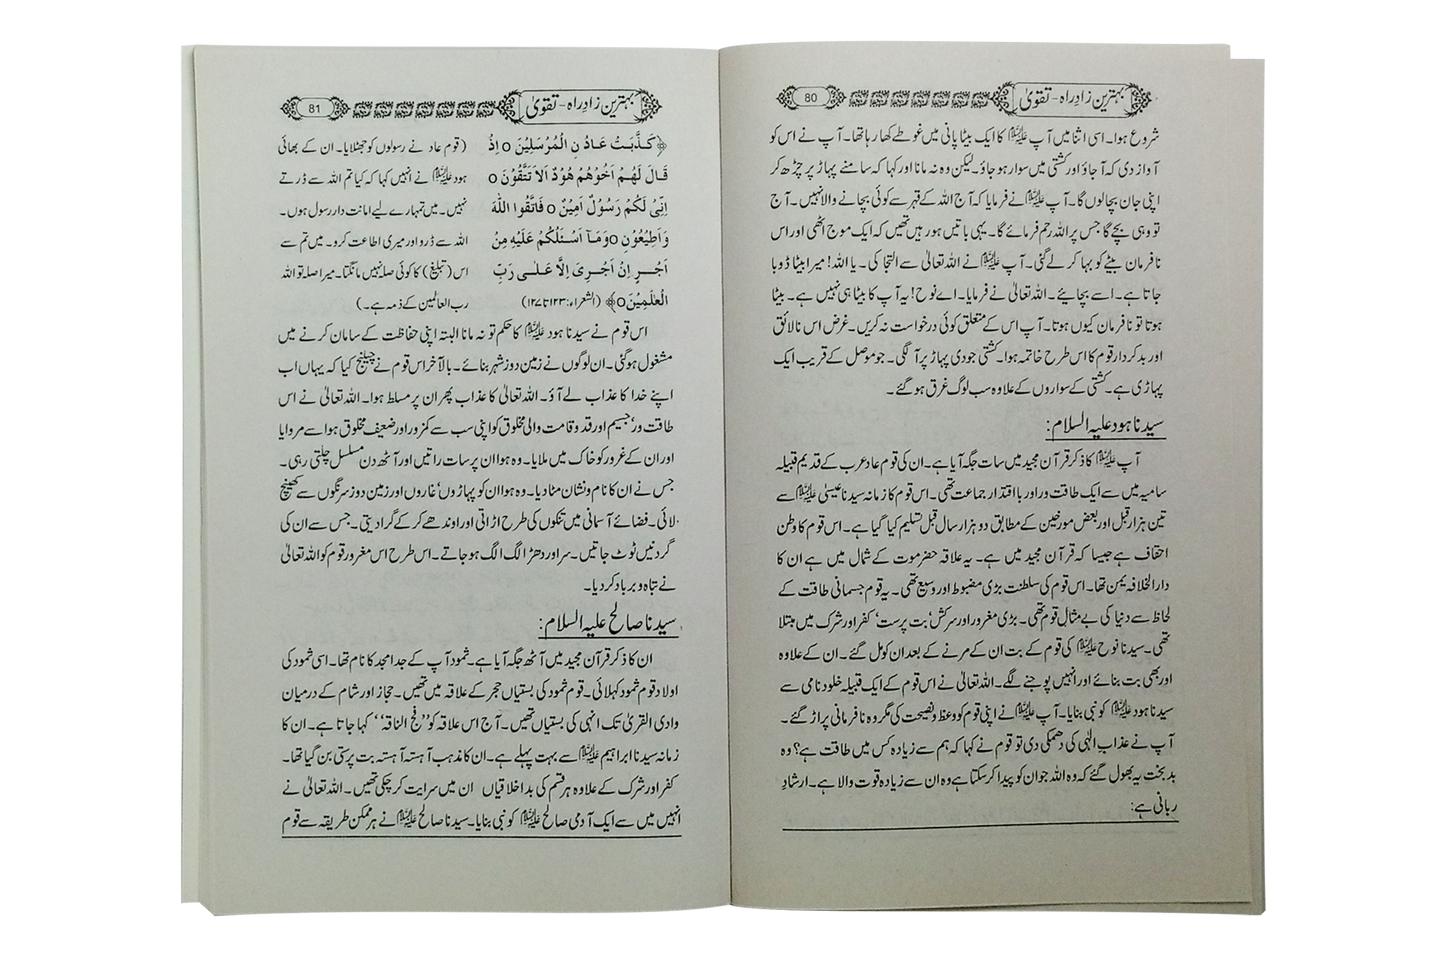 بہترین زادِ راہ - تقویٰ
80
شروع ہوا۔ اسی اثنا میں آپ علیہ السلام کا ایک بیٹا پانی میں غوطے کھا رہا تھا۔ آپ نے اس کو
آواز دی کہ آ جاؤ اور کشتی میں سوار ہو جاؤ۔ لیکن وہ نہ مانا اور کہا کہ سامنے پہاڑ پر چڑھ کر
اپنی جان بچا لوں گا۔ آپ علیہ السلام نے فرمایا کہ آج اللہ کے قہر سے کوئی بچانے والا نہیں۔ آج
تو وہی بچے گا جس پر اللہ رحم فرمائے گا۔ یہی باتیں ہو رہیں تھیں کہ ایک موج اٹھی اور اس
نافرمان بیٹے کو بہا کر لے گئی۔ آپ علیہ السلام نے اللہ تعالیٰ سے التجا کی۔ یا اللہ! میرا بیٹا ڈوبا
جاتا ہے۔ اسے بچائیے۔ اللہ تعالیٰ نے فرمایا۔ اے نوح! یہ آپ کا بیٹا ہی نہیں ہے۔ بیٹا
ہوتا تو نافرمان کیوں ہوتا۔ آپ اس کے متعلق کوئی درخواست نہ کریں۔ غرض اس نالائق
اور بدکردار قوم کا اس طرح خاتمہ ہوا۔ کشتی جودی پہاڑ پر آ لگی۔ جو موصل کے قریب ایک
پہاڑی ہے۔ کشتی کے سواروں کے علاوہ سب لوگ غرق ہو گئے۔
سیدنا ہود علیہ السلام:
آپ علیہ السلام کا ذکر قرآن مجید میں سات جگہ آیا ہے۔ ان کی قوم عاد عرب کے قدیم قبیلہ
سامیہ میں سے ایک طاقت ور اور با اقتدار جماعت تھی۔ اس قوم کا زمانہ سیدنا عیسیٰ علیہ السلام سے
تین ہزار قبل اور بعض مورخین کے مطابق دو ہزار سال قبل تسلیم کیا گیا ہے۔ اس قوم کا وطن
احقاف ہے جیسا کہ قرآن مجید میں ہے۔ یہ علاقہ حضرموت کے شمال میں ہے ان کا
دارالخلافہ یمن تھا۔ اس قوم کی سلطنت بڑی مضبوط اور وسیع تھی۔ یہ قوم جسمانی طاقت کے
لحاظ سے دنیا کی بے مثال قوم تھی۔ بڑی مغرور اور سرکش، بت پرست، کفر اور شرک میں مبتلا
تھی۔ سیدنا نوح علیہ السلام کی قوم کے بت ان کے مرنے کے بعد ان کو مل گئے۔ ان کے علاوہ
اور بھی بت بنائے اور انہیں پوجنے لگے۔ اللہ تعالیٰ نے اس قوم کے ایک قبیلہ خلود نامی سے
سیدنا ہود علیہ السلام کو نبی بنایا۔ آپ علیہ السلام نے اپنی قوم کو وعظ و نصیحت کی مگر وہ نافرمانی پر اڑ گئے۔
آپ نے عذاب الٰہی کی دھمکی دی تو قوم نے کہا کہ ہم سے زیادہ کس میں طاقت ہے؟ وہ
بدبخت یہ بھول گئے کہ وہ اللہ جو ان کو پیدا کر سکتا ہے وہ ان سے زیادہ قوت والا ہے۔ ارشادِ
ربانی ہے:
بہترین زادِ راہ - تقویٰ
81
﴿كَذَّبَتْ عَادُ نِ الْمُرْسَلِيْنَ o اِذْ
قَالَ لَهُمْ اَخُوْهُمْ هُوْدٌ اَلاَ تَتَّقُوْنَ o
اِنِّىْ لَكُمْ رَسُوْلٌ اَمِيْنٌ o فَاتَّقُوا اللهَ
وَاَطِيْعُوْنِ o وَمَآ اَسْئَلُكُمْ عَلَيْهِ مِنْ
اَجْرٍ اِنْ اَجْرِىَ اِلَّا عَلٰى رَبِّ
الْعٰلَمِيْنَ o﴾ (الشعراء: ۱۲۳ تا ۱۲۷)
(قوم عاد نے رسولوں کو جھٹلایا۔ ان کے بھائی
ہود علیہ السلام نے انہیں کہا کہ کیا تم اللہ سے ڈرتے
نہیں۔ میں تمہارے لیے امانت دار رسول ہوں۔
اللہ سے ڈرو اور میری اطاعت کرو۔ میں تم سے
اس (تبلیغ) کا کوئی صلہ نہیں مانگتا۔ میرا صلہ تو اللہ
رب العالمین کے ذمہ ہے۔)
اس قوم نے سیدنا ہود علیہ السلام کا حکم تو نہ مانا البتہ اپنی حفاظت کے سامان کرنے میں
مشغول ہو گئی۔ ان لوگوں نے زمین دوز شہر بنائے۔ بالآخر اس قوم نے چیلنج کیا کہ یہاں اب
اپنے خدا کا عذاب لے آؤ۔ اللہ تعالیٰ کا عذاب پھر ان پر مسلط ہوا۔ اللہ تعالیٰ نے اس
طاقت ور، جسیم اور قد و قامت والی مخلوق کو اپنی سب سے کمزور اور ضعیف مخلوق ہوا سے مروایا
اور ان کے غرور کو خاک میں ملایا۔ وہ ہوا ان پر سات راتیں اور آٹھ دن مسلسل چلتی رہی۔
جس نے ان کا نام و نشان مٹا دیا۔ وہ ہوا ان کو پہاڑوں، غاروں اور زمین دوز سرنگوں سے کھینچ
لائی۔ فضائے آسمانی میں تنکوں کی طرح اڑاتی اور اوندھے کر کے گرا دیتی۔ جس سے ان کی
گردنیں ٹوٹ جاتیں۔ سر اور دھڑ الگ الگ ہو جاتے۔ اس طرح اس مغرور قوم کو اللہ تعالیٰ
نے تباہ و برباد کر دیا۔
سیدنا صالح علیہ السلام:
ان کا ذکر قرآن مجید میں آٹھ جگہ آیا ہے۔ ثمود آپ کے جد امجد کا نام تھا۔ اسی ثمود کی
اولاد قوم ثمود کہلائی۔ قوم ثمود کی بستیاں حجر کے علاقہ میں تھیں۔ حجاز اور شام کے درمیان
وادی القریٰ تک انہی کی بستیاں تھیں۔ آج اس علاقہ کو ”فج الناقہ“ کہا جاتا ہے۔ ان کا
زمانہ سیدنا ابراہیم علیہ السلام سے بہت پہلے ہے۔ ان کا مذہب آہستہ آہستہ بت پرستی بن گیا تھا۔
کفر اور شرک کے علاوہ ہر قسم کی بداخلاقیاں ان میں سرایت کر چکی تھیں۔ اللہ تعالیٰ نے
انہیں میں سے ایک آدمی صالح علیہ السلام کو نبی بنایا۔ سیدنا صالح علیہ السلام نے ہر ممکن طریقہ سے قوم